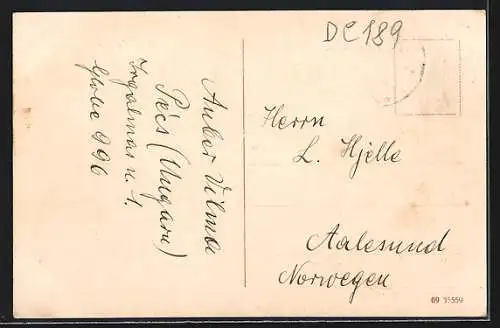 DC189
Anker Vilma
Pécs (Ungarn)
Irgalmas u. 1.
Globe 996
Herrn
L. Hjelle
Aalesund
Norwegen
69 35559